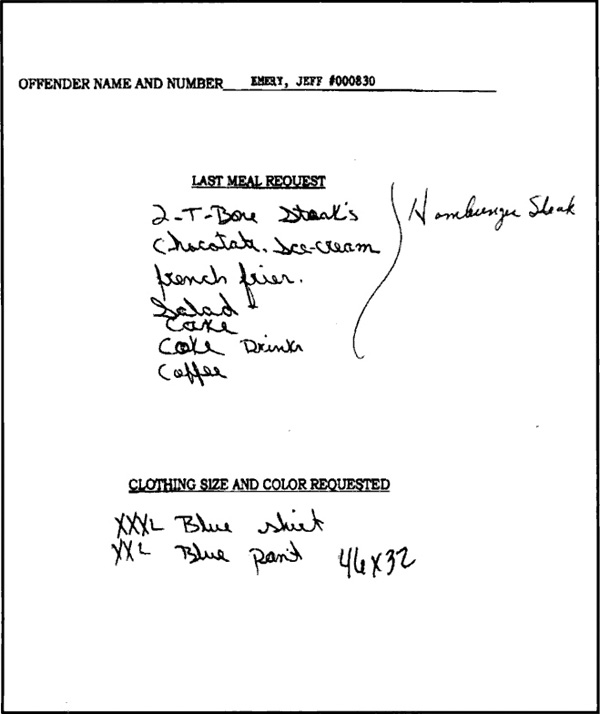 OFFENDER NAME AND NUMBER EMERY, JEFF #000830
LAST MEAL REQUEST
2-T-Bone Steak's
Hamburger Steak
Chocolate. Ice-cream
french fries.
Salad
Cake
Coke Drinks
Coffee
CLOTHING SIZE AND COLOR REQUESTED
XXXL Blue shirt
XXL Blue pant 46X32